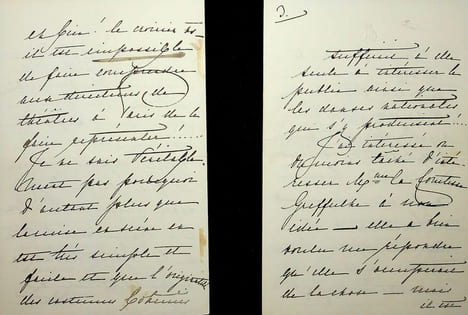 et bien! le croiriez-
il est impossible
de faire comprendre
aux directeurs de
théâtres à Paris de la
faire représenter!....
Je ne sais véritable-
ment pas pourquoi
d'autant plus que
la mise en scène en
est très simple et
facile et que l'originalité
des costumes Bohémiens
3.
suffirait, à elle
seule à intéresser le
public ainsi que
les danses nationales
que s'y produisent!..
J'ai intéressé ou
du moins taché d'inté-
resser Mme la Comtesse
Greffulhe à mon
idée — elle a bien
voulu me répondre
qu'elle s'occuperait
de la chose — mais
il est